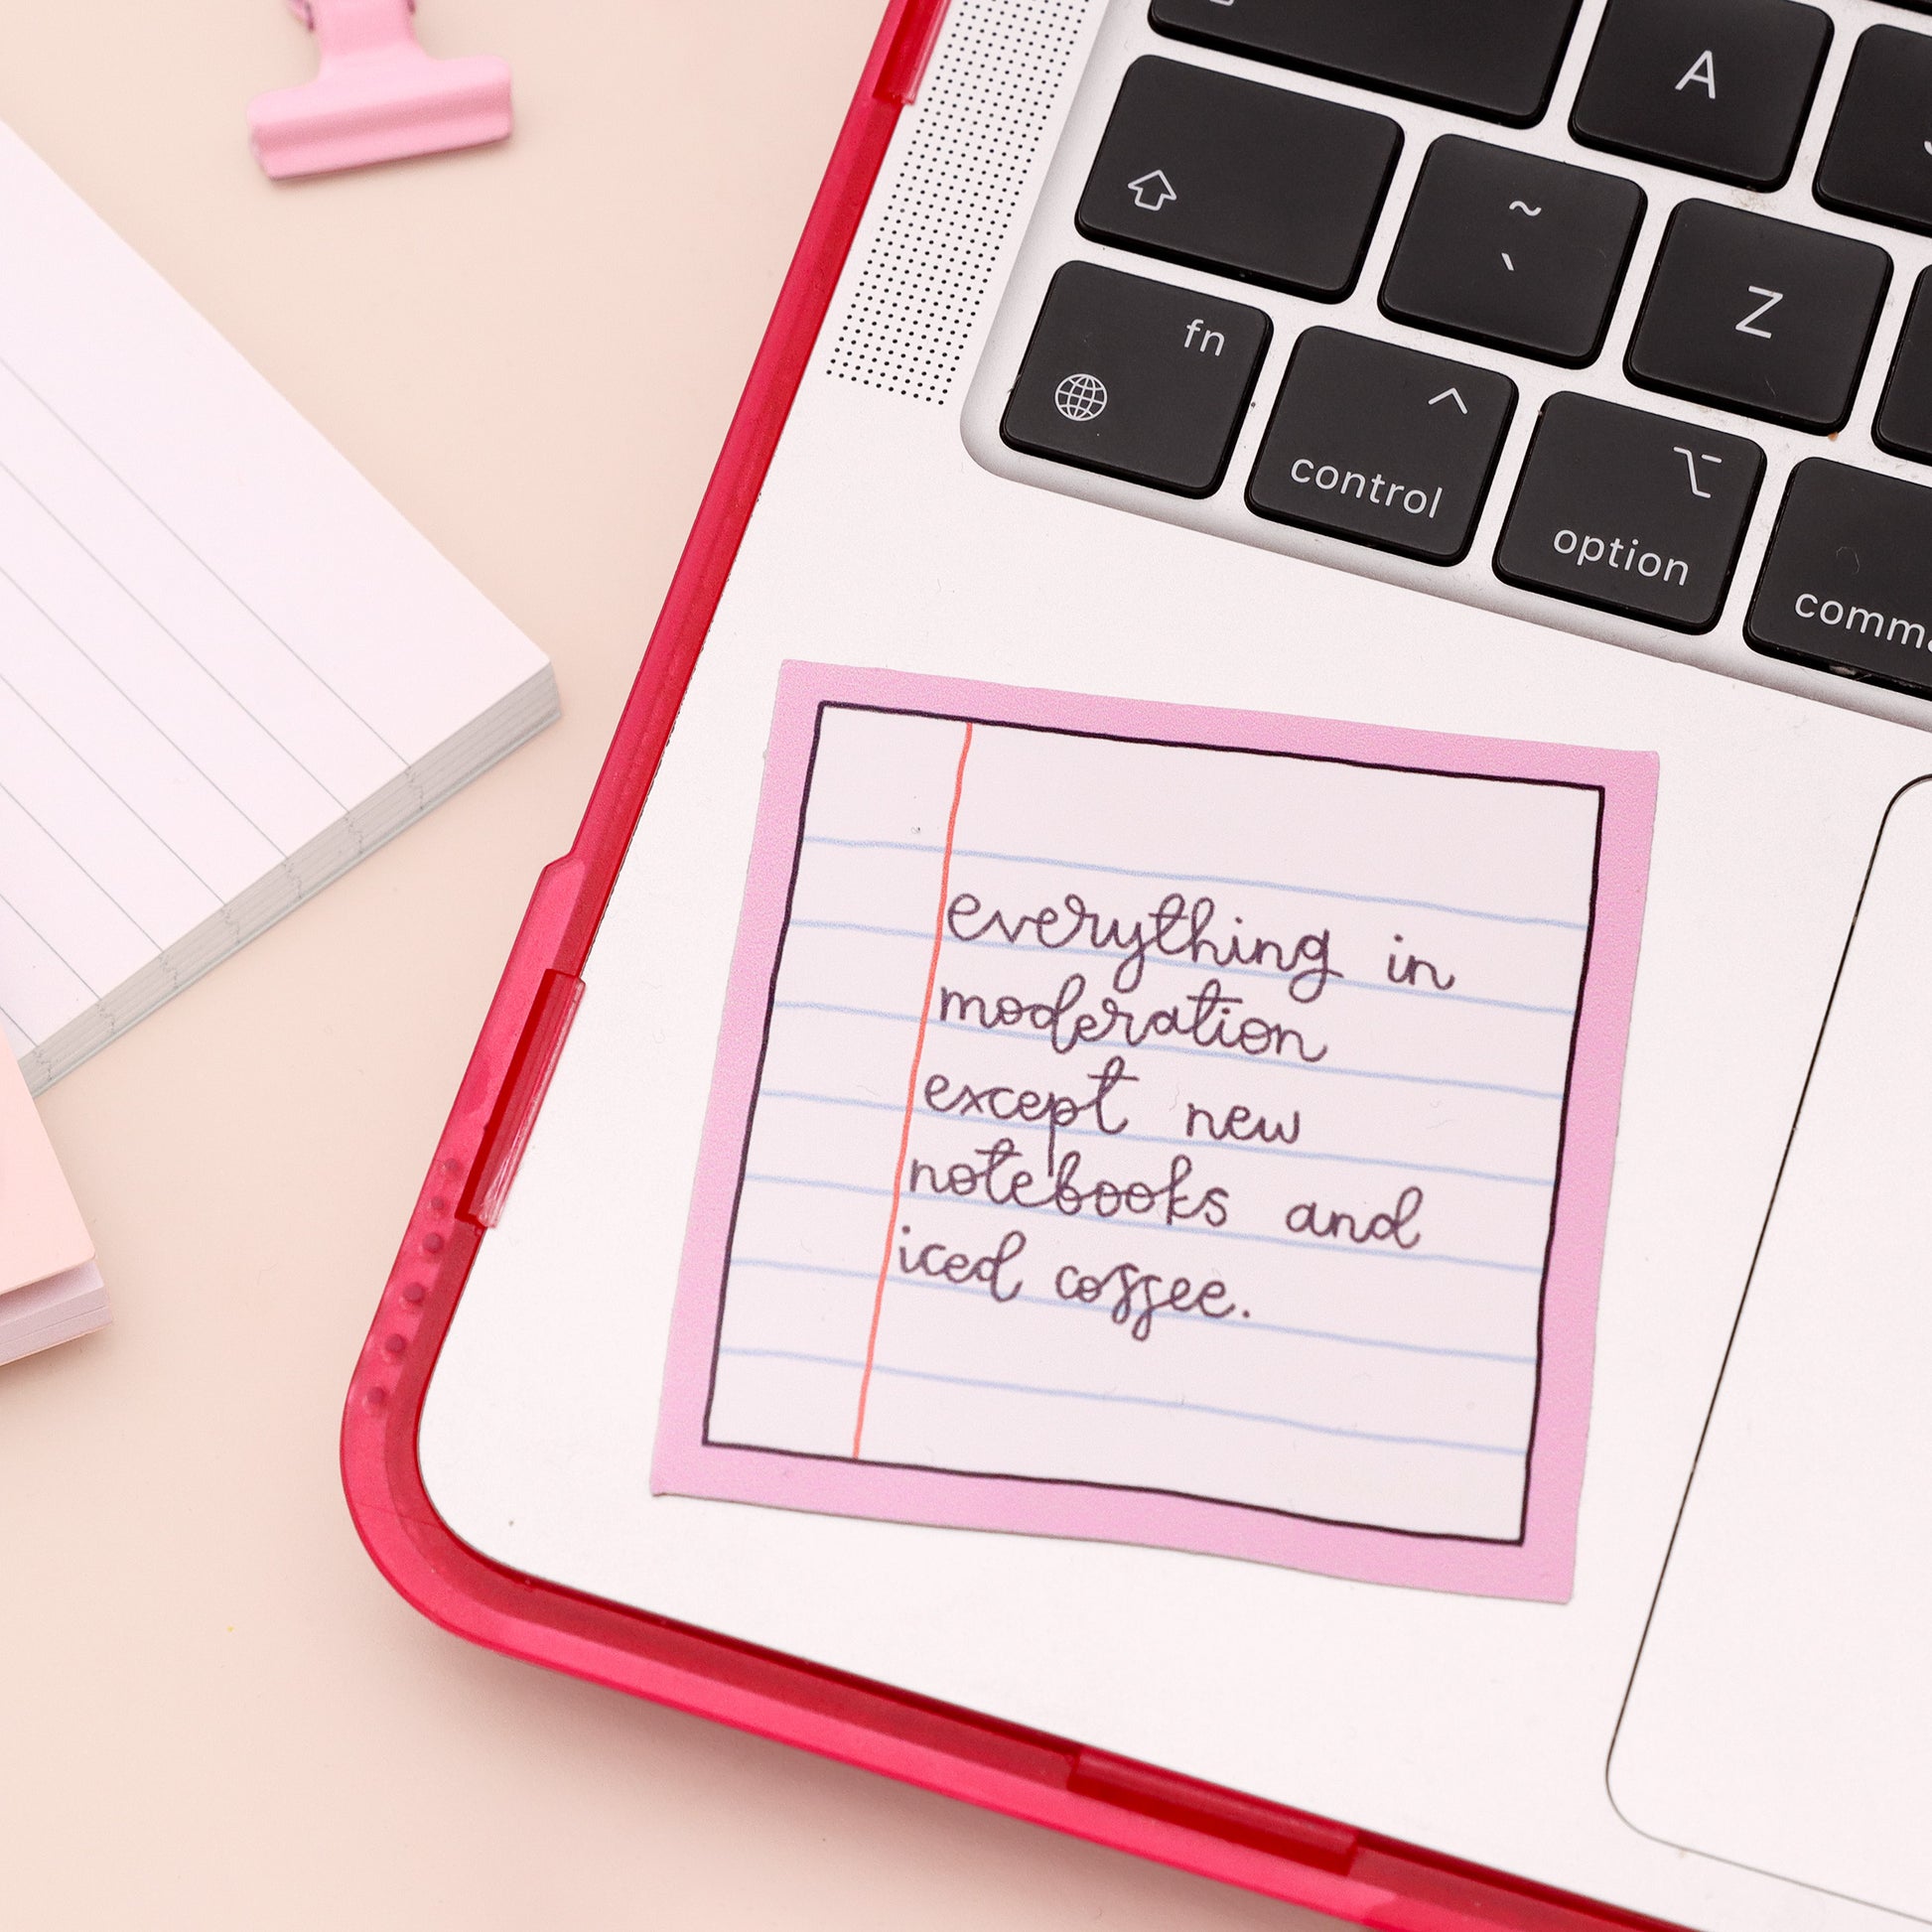 A
~
`
Z
fn
control
option
comm
everything in
moderation
except new
notebooks and
iced coffee.